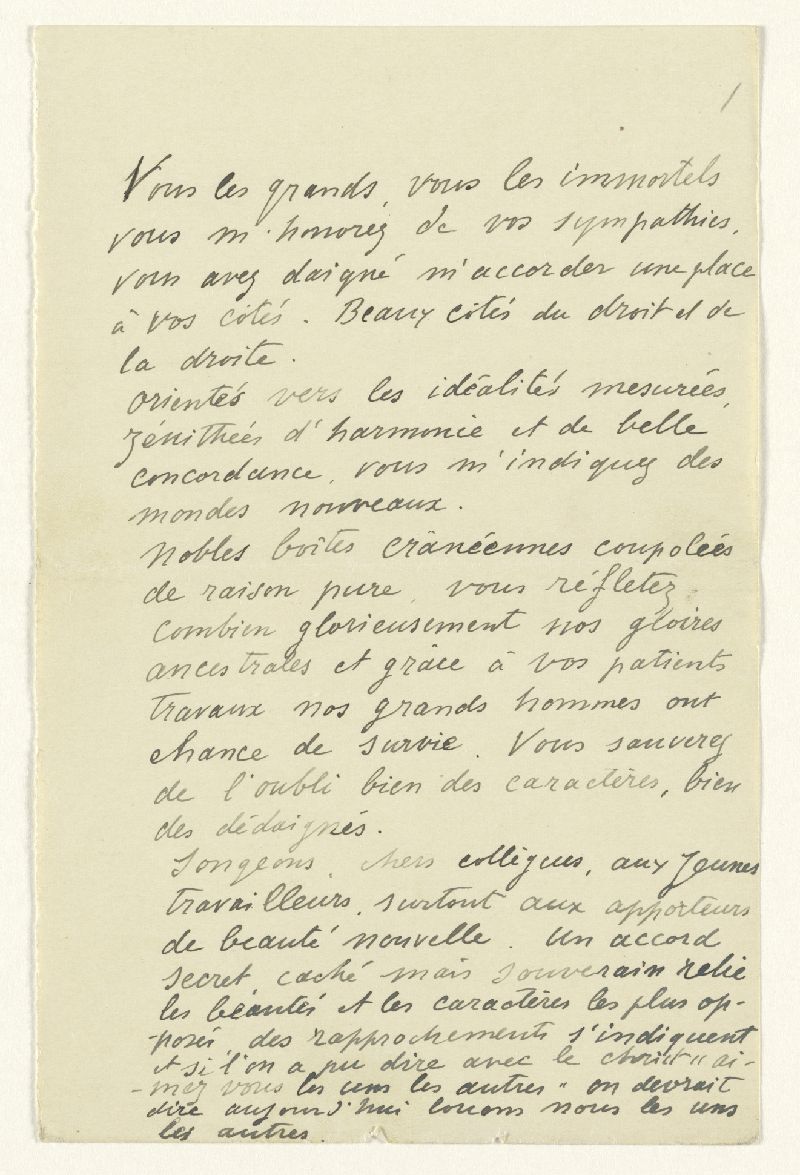 1
Vous les grands, vous les immortels
vous m'honorez de vos sympathies,
vous avez daigné m'accorder une place
à vos côtés. Beaux côtés du droit et de
la droite.
orientés vers les idéalités mesurées,
zénithées d'harmonie et de belle
concordance, vous m'indiquez des
mondes nouveaux.
Nobles boîtes crânéennes coupolées
de raison pure, vous réfletez
combien glorieusement nos gloires
ancestrales et grâce à vos patients
travaux nos grands hommes ont
chance de survie. Vous sauverez
de l'oubli bien des caractères, bien
des dédaignés.
Songeons, chers collègues, aux jeunes
travailleurs, surtout aux apporteurs
de beauté nouvelle. Un accord
secret caché mais souverain relie
les beautés et les caractères les plus op-
-posés des rapprochements s'indiquent
et si l'on a pu dire avec le christ "ai-
-mez vous les uns les autres" on devrait
dire aujourd'hui louons nous les uns
les autres.